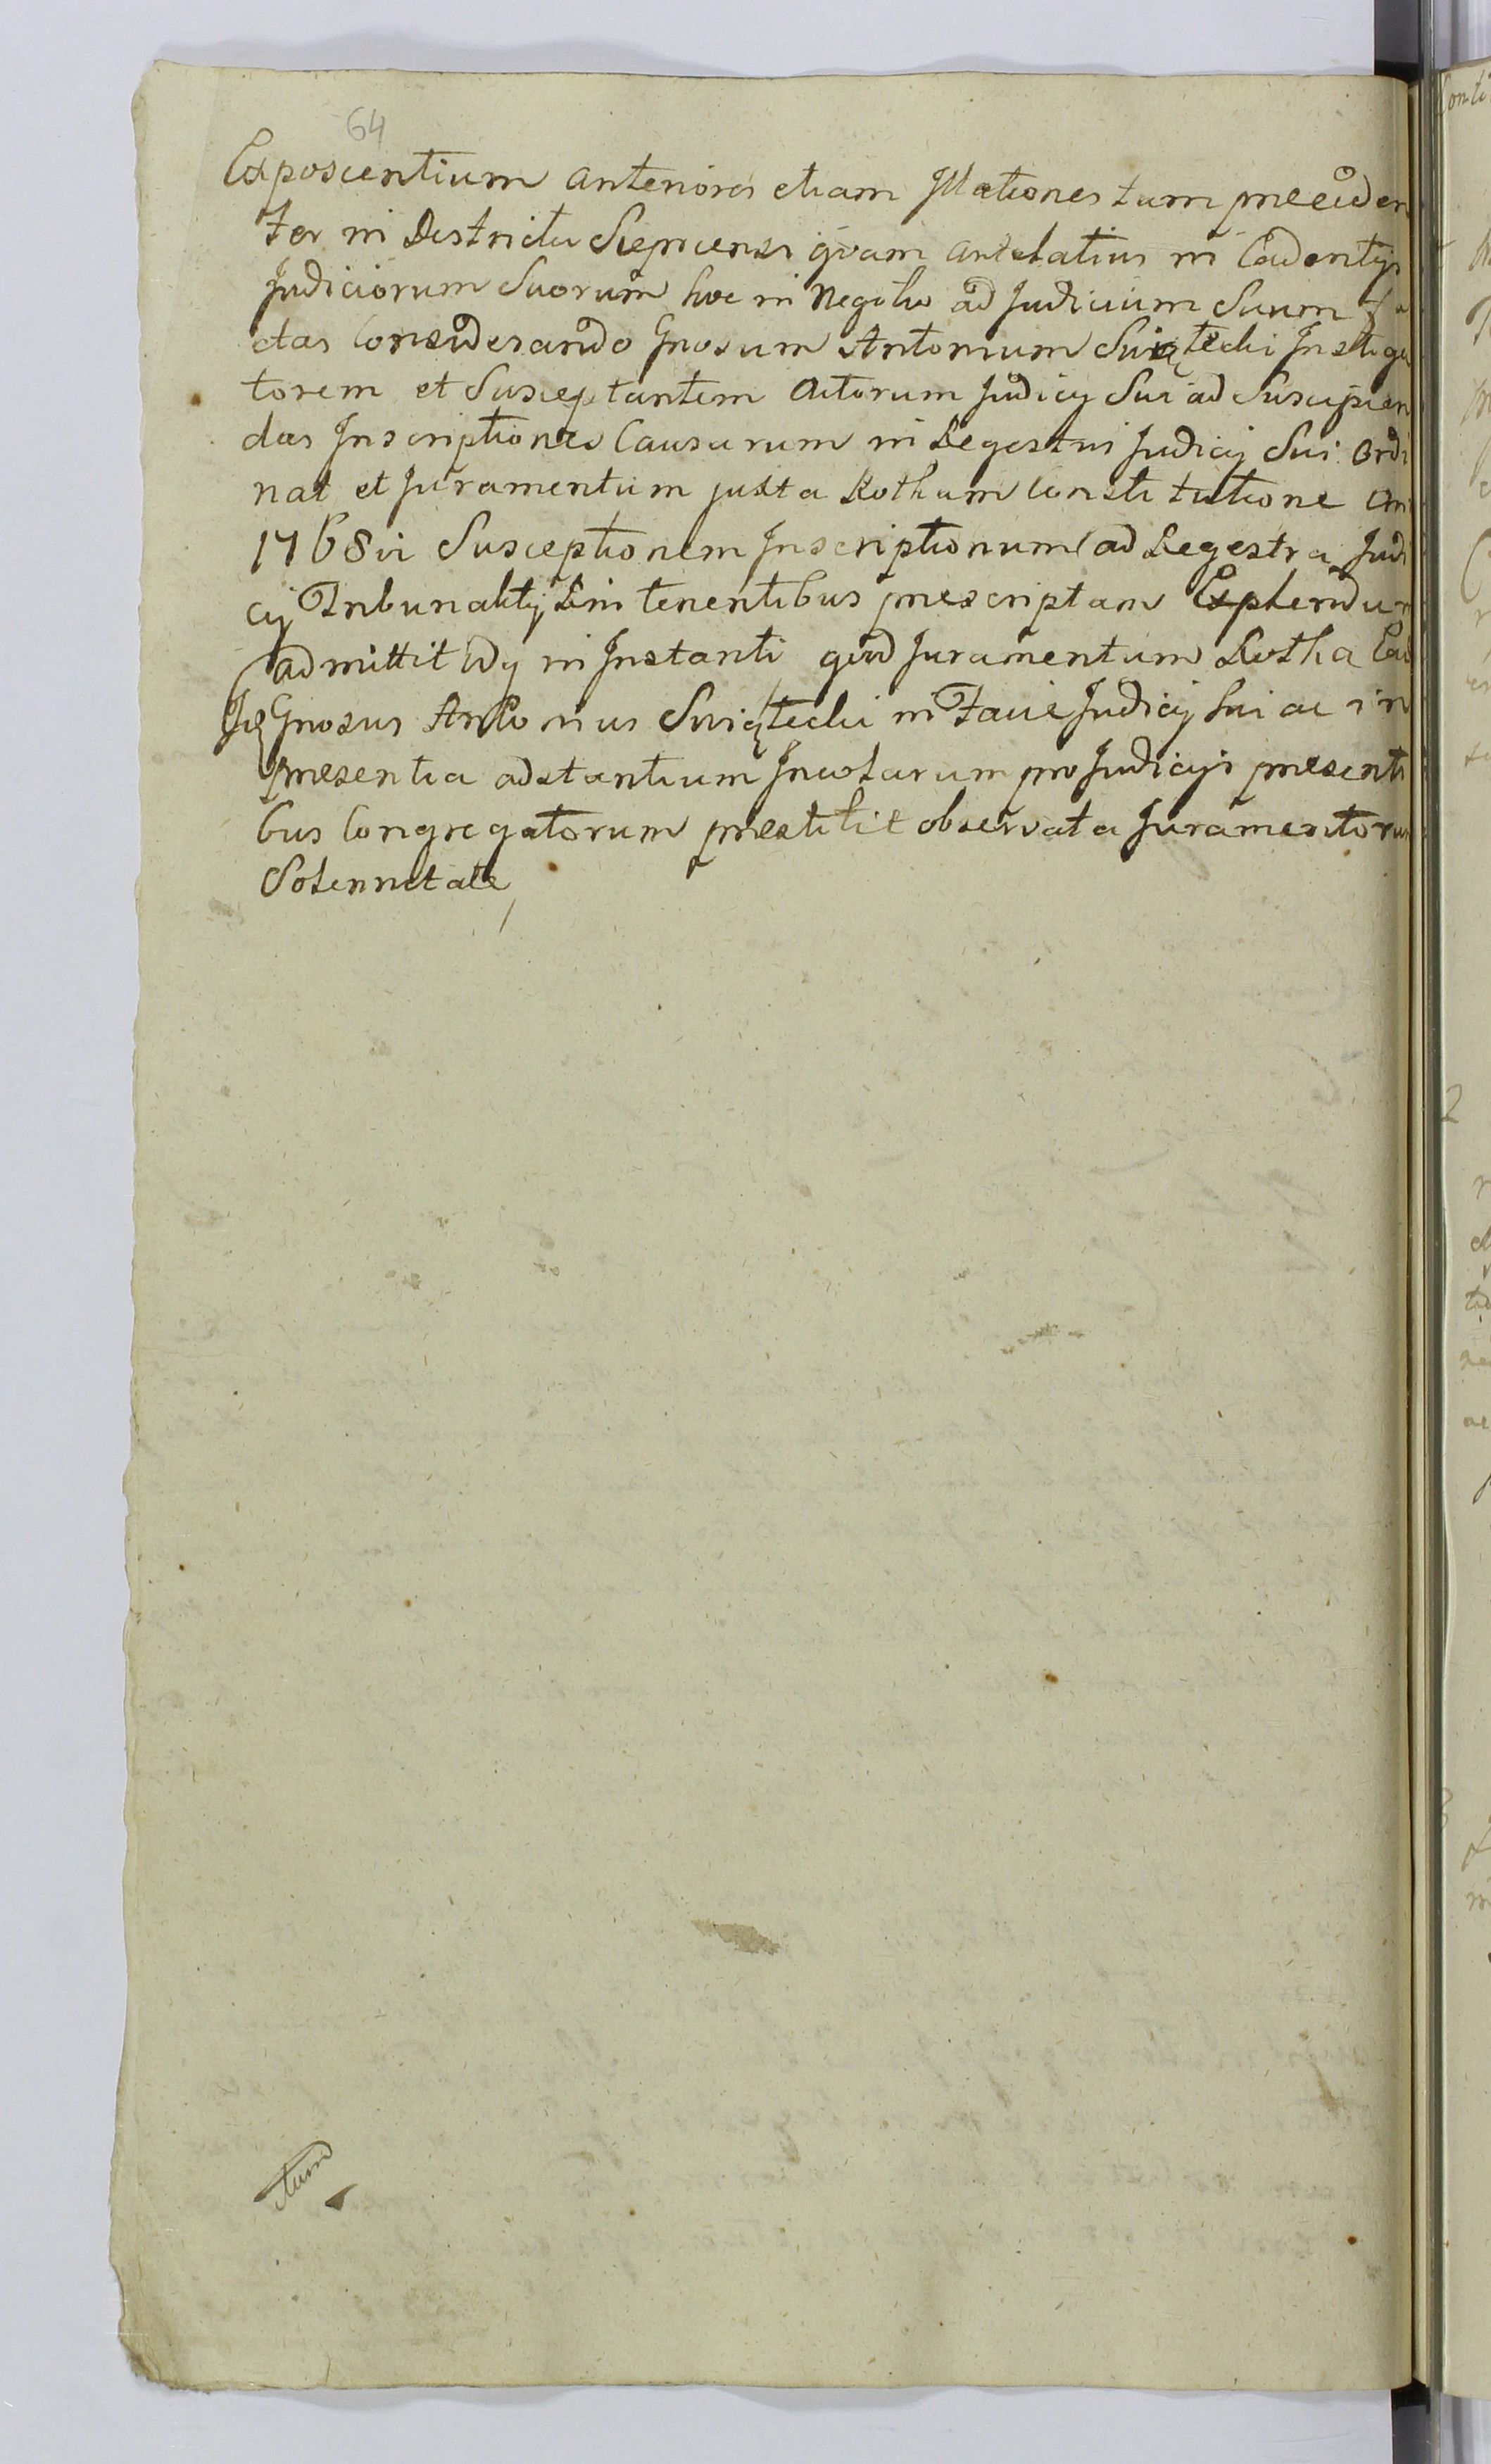 64
Exposcentium anteriores etiam Illationes tum præeviden
ter in Districtu Sieprcensi qvam antelatius in Cadentijs
Judiciorum Suorum hoc in Negotio ad Judicium Suum fa
ctas Considerando Gnosum Antonium Swiętecki Instiga
torem et Susceptantem Actorum Judicij Sui ad Suscipien
das Inscriptiones Causarum in Regestris Judicij Sui Ordi
nat et Juramentum juxta Rotham Constitutione Ani
1768vi Susceptionem Inscriptionum ad Regestra Judi
cij Tribunalitij Rni tenentibus præscriptam Explendum
admittit in Instanti qvod Juramentum Rotha
Gnosus Antonius Swiętecki in Facie Judicij Sui ac in
Præsentia adstantium Incolarum pro Judicijs præsenti
bus Congregatorum præstitit observata Juramentorum
Solennitate